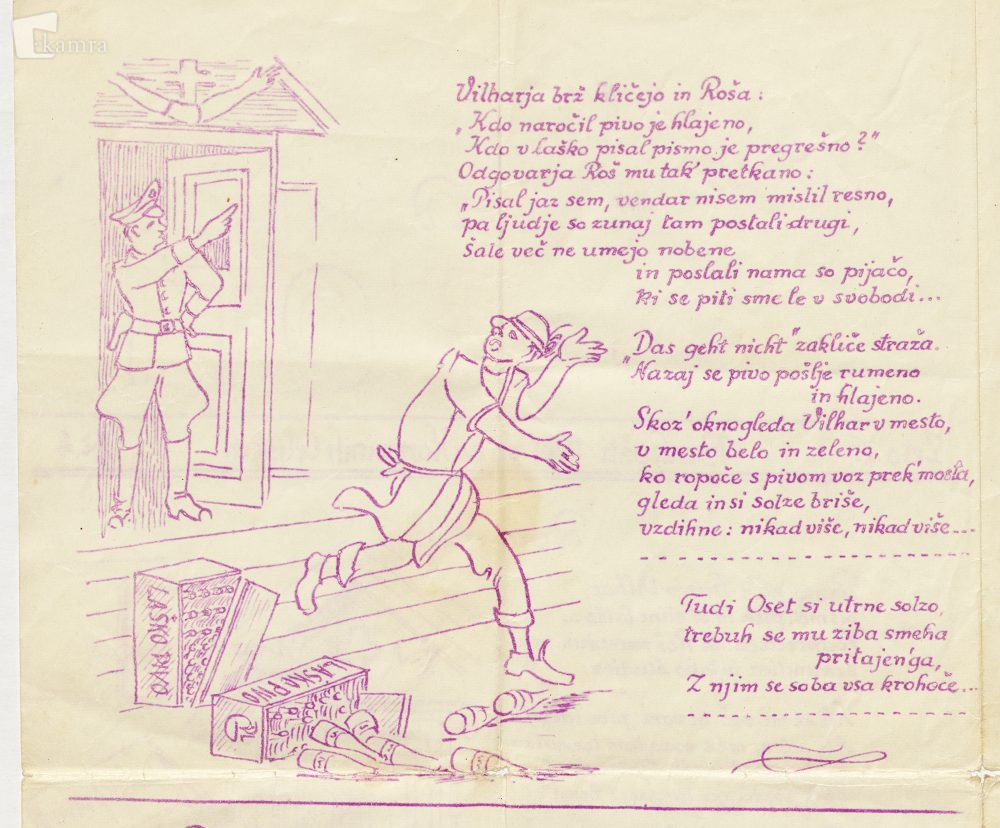 kamra
Vilharja brž kličejo in Roša:
„Kdo naročil pivo je hlajeno,
Kdo v Laško pisal pismo je pregrešno?"
Odgovarja Roš mu tak' pretkano:
„Pisal jaz sem, vendar nisem mislil resno,
pa ljudje so zunaj tam postali drugi,
šale več ne umejo nobene
in poslali nama so pijačo,
ki se piti sme le v svobodi...
„Das geht nicht" zakliče straža.
"Nazaj se pivo pošlje rumeno
in hlajeno.
Skoz' okno gleda Vilhar v mesto,
v mesto belo in zeleno,
ko ropoče s pivom voz prek' mosta,
gleda in si solze briše,
vzdihne: nikad više, nikad više...
Tudi Oset si utrne solzo,
trebuh se mu ziba smeha
pritajen'ga,
Z njim se soba vsa krohoče...
LAŠKO PIVO
LAŠKO PIVO